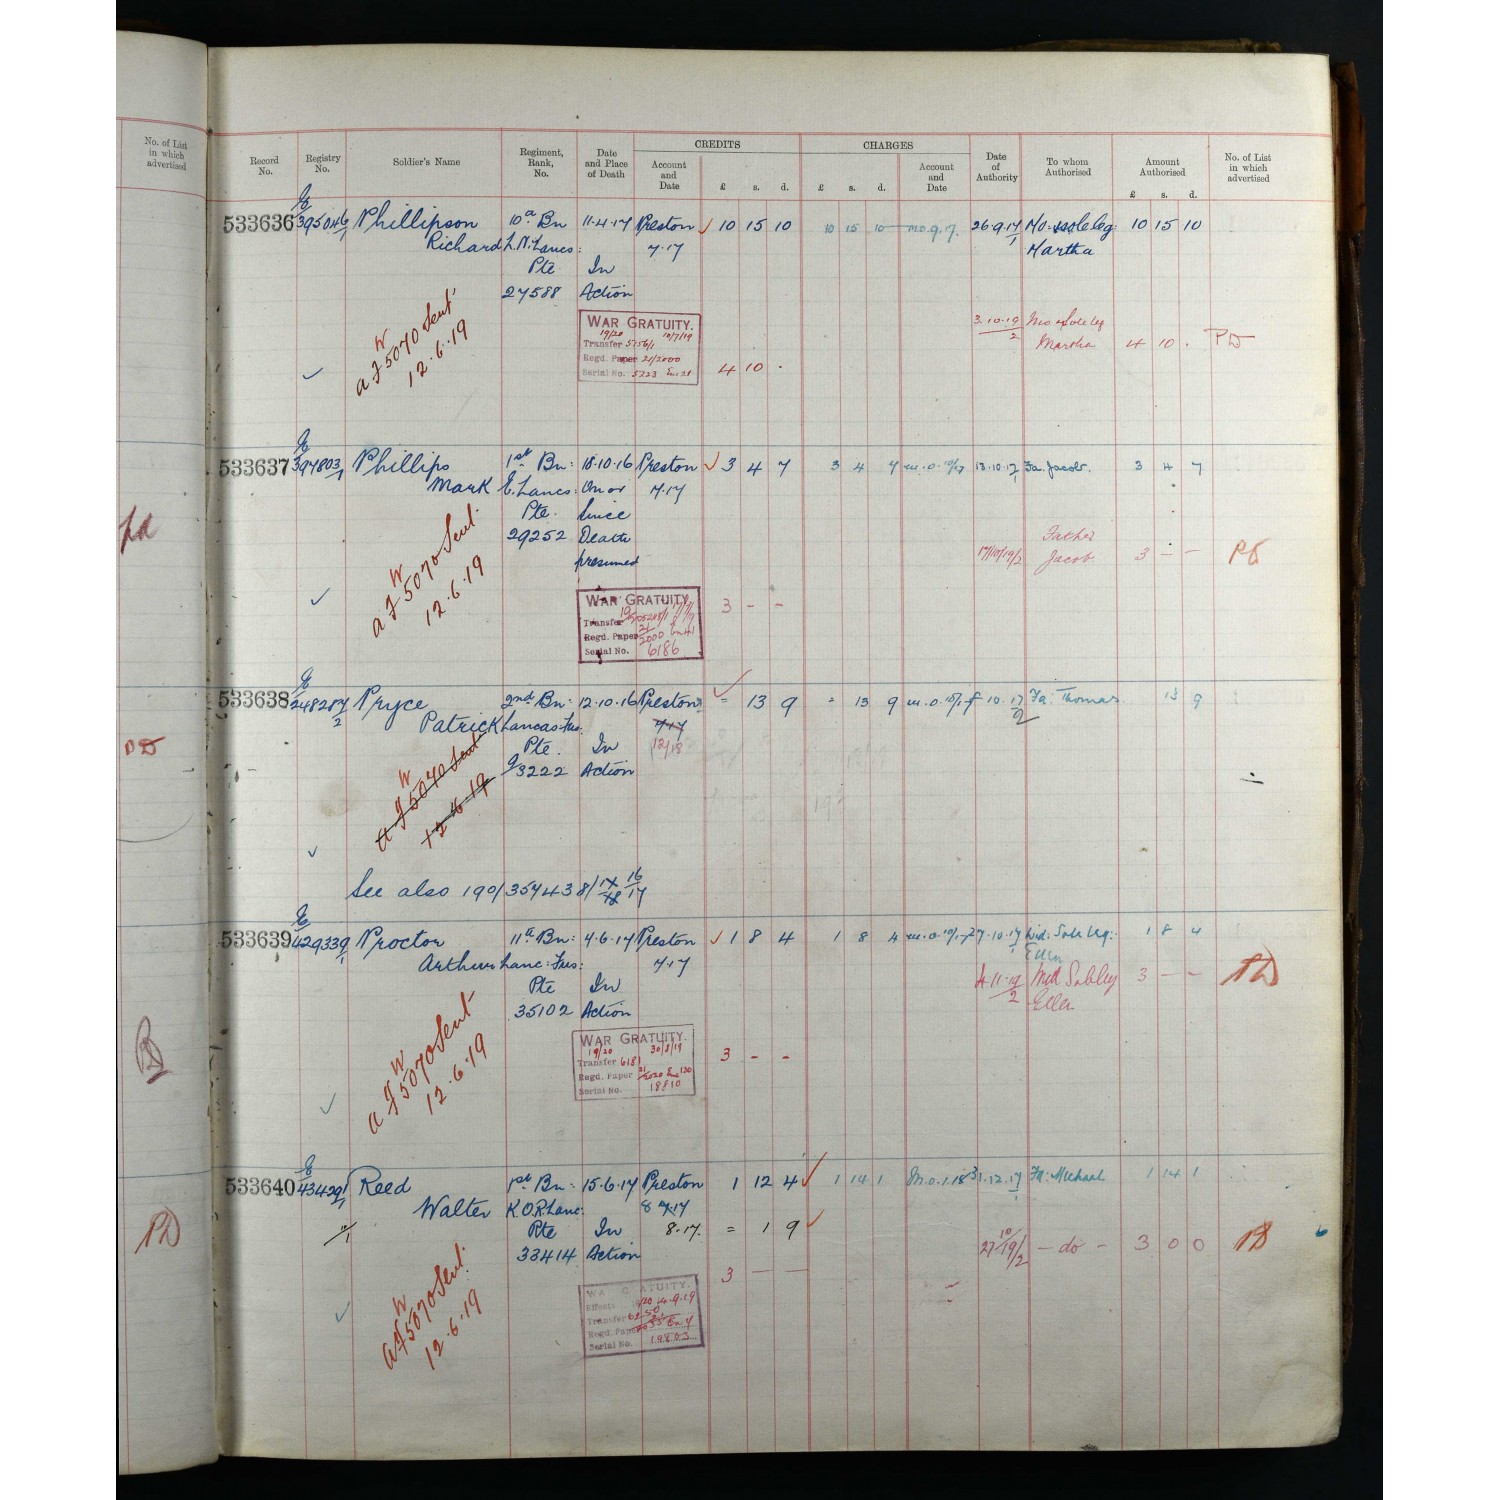 No. of List
in which
advertised
Record
No.
Registry
No.
Soldier's Name
Regiment,
Rank,
No.
Date
and Place
of Death
CREDITS
Account
and
Date
£ s. d.
CHARGES
£ s. d.
Account
and
Date
Date
of
Authority
To whom
Authorised
Amount
Authorised
£ s. d.
No. of List
in which
advertised
E
533636 395046/1 Phillipson 10th Bn 11.4.17 Preston 10 15 10 10 15 10 M.O.9.17. 26.9.17/1 Mo: sole leg: 10 15 10
Richard L.N.Lancs: 7.17 Martha
Pte In
27588 Action
WAR GRATUITY.
19/20 10/7/19
Transfer 5156/1
Regd. Paper 21/2000
Serial No. 5223
3.10.19/2 Mo & Sole leg
Martha 4 10 . PD
4 10 .
W
a f 5070 Sent
12.6.19
E
533637 397803/1 Phillips 1st Bn: 18.10.16 Preston 3 4 7 3 4 7 M.O.10/17 13.10.17/1 Fa. Jacob. 3 4 7
Mark E.Lancs: On or 7.17
Pte. Since
29252 Death
presumed
Father
17/10/19/2 Jacob 3 - - PD
WAR GRATUITY.
Transfer
Regd. Paper
Serial No. 6186
3 - -
W
a f 5070 Sent.
12.6.19
E
533638 248287/2 Pryce 2nd Bn: 12.10.16 Preston = 13 9 = 13 9 Fa: Thomas. 13 9
Patrick Lancas:Fus: 7.17
Pte. In 12/18
3222 Action
W
a f 5070 Sent
12.6.19
See also 190/357438/
E
533639 429339/1 Proctor 11th Bn: 7.6.17 Preston 1 8 4 1 8 4 M.O.10/17 27.10.17/1 Wid: Sole Leg: 1 8 4
Ellen
Arthur Lanc:Fus: 7.17
Pte In
35102 Action
4.11.19/2 Wid Sole leg 3 - - PD
Ellen
WAR GRATUITY.
19/20 30/8/19
Transfer 6181
Regd. Paper
Serial No. 18810
3 - -
W
a f 5070 Sent
12.6.19
E
533640 434291/1 Reed 1st Bn: 15.6.17 Preston 1 12 4 1 14 1 M.O.1.18 31.12.17/1 Fa: Michael 1 14 1
Walter K.O.R.Lanc: 8 7.17
Pte In 8.17. = 1 9
33414 Action
27/10/19/2 - do - 3 0 0 PD
3 - -
WAR GRATUITY.
Effects 19/20 4.9.19
Transfer
Regd. Paper
Serial No. 19803
W
a f 5070 Sent.
12.6.19